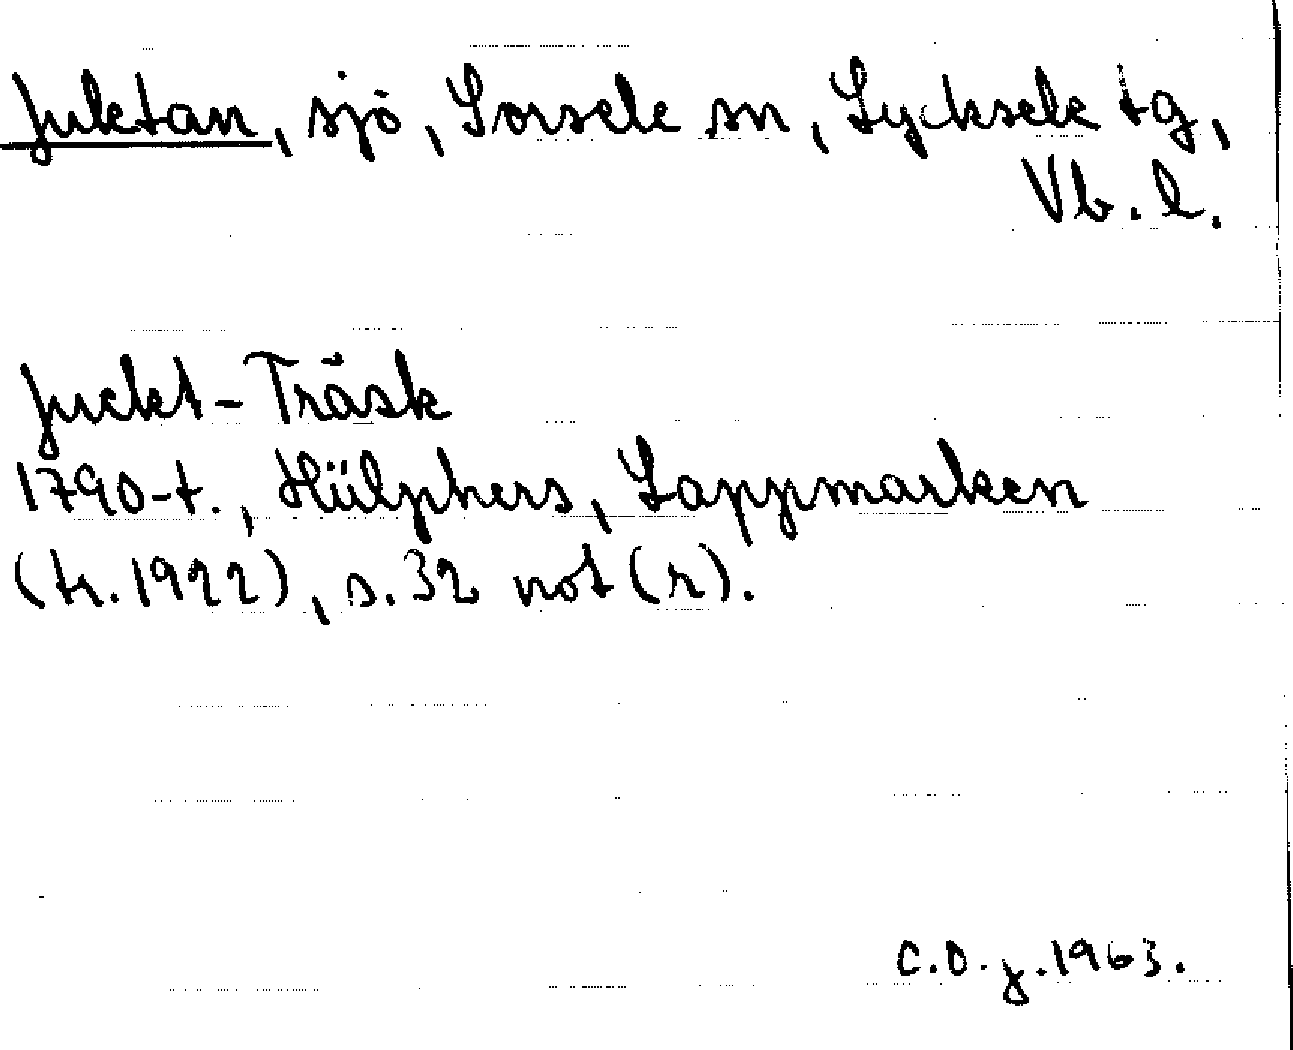 Juktan, sjö, Sorsele sn, Lycksele tg,
Vb. l.
Juckt-Träsk
1790-t., Hülphers, Lappmarken
(tr. 1922), s. 32 not (r).
C.O.j. 1963.